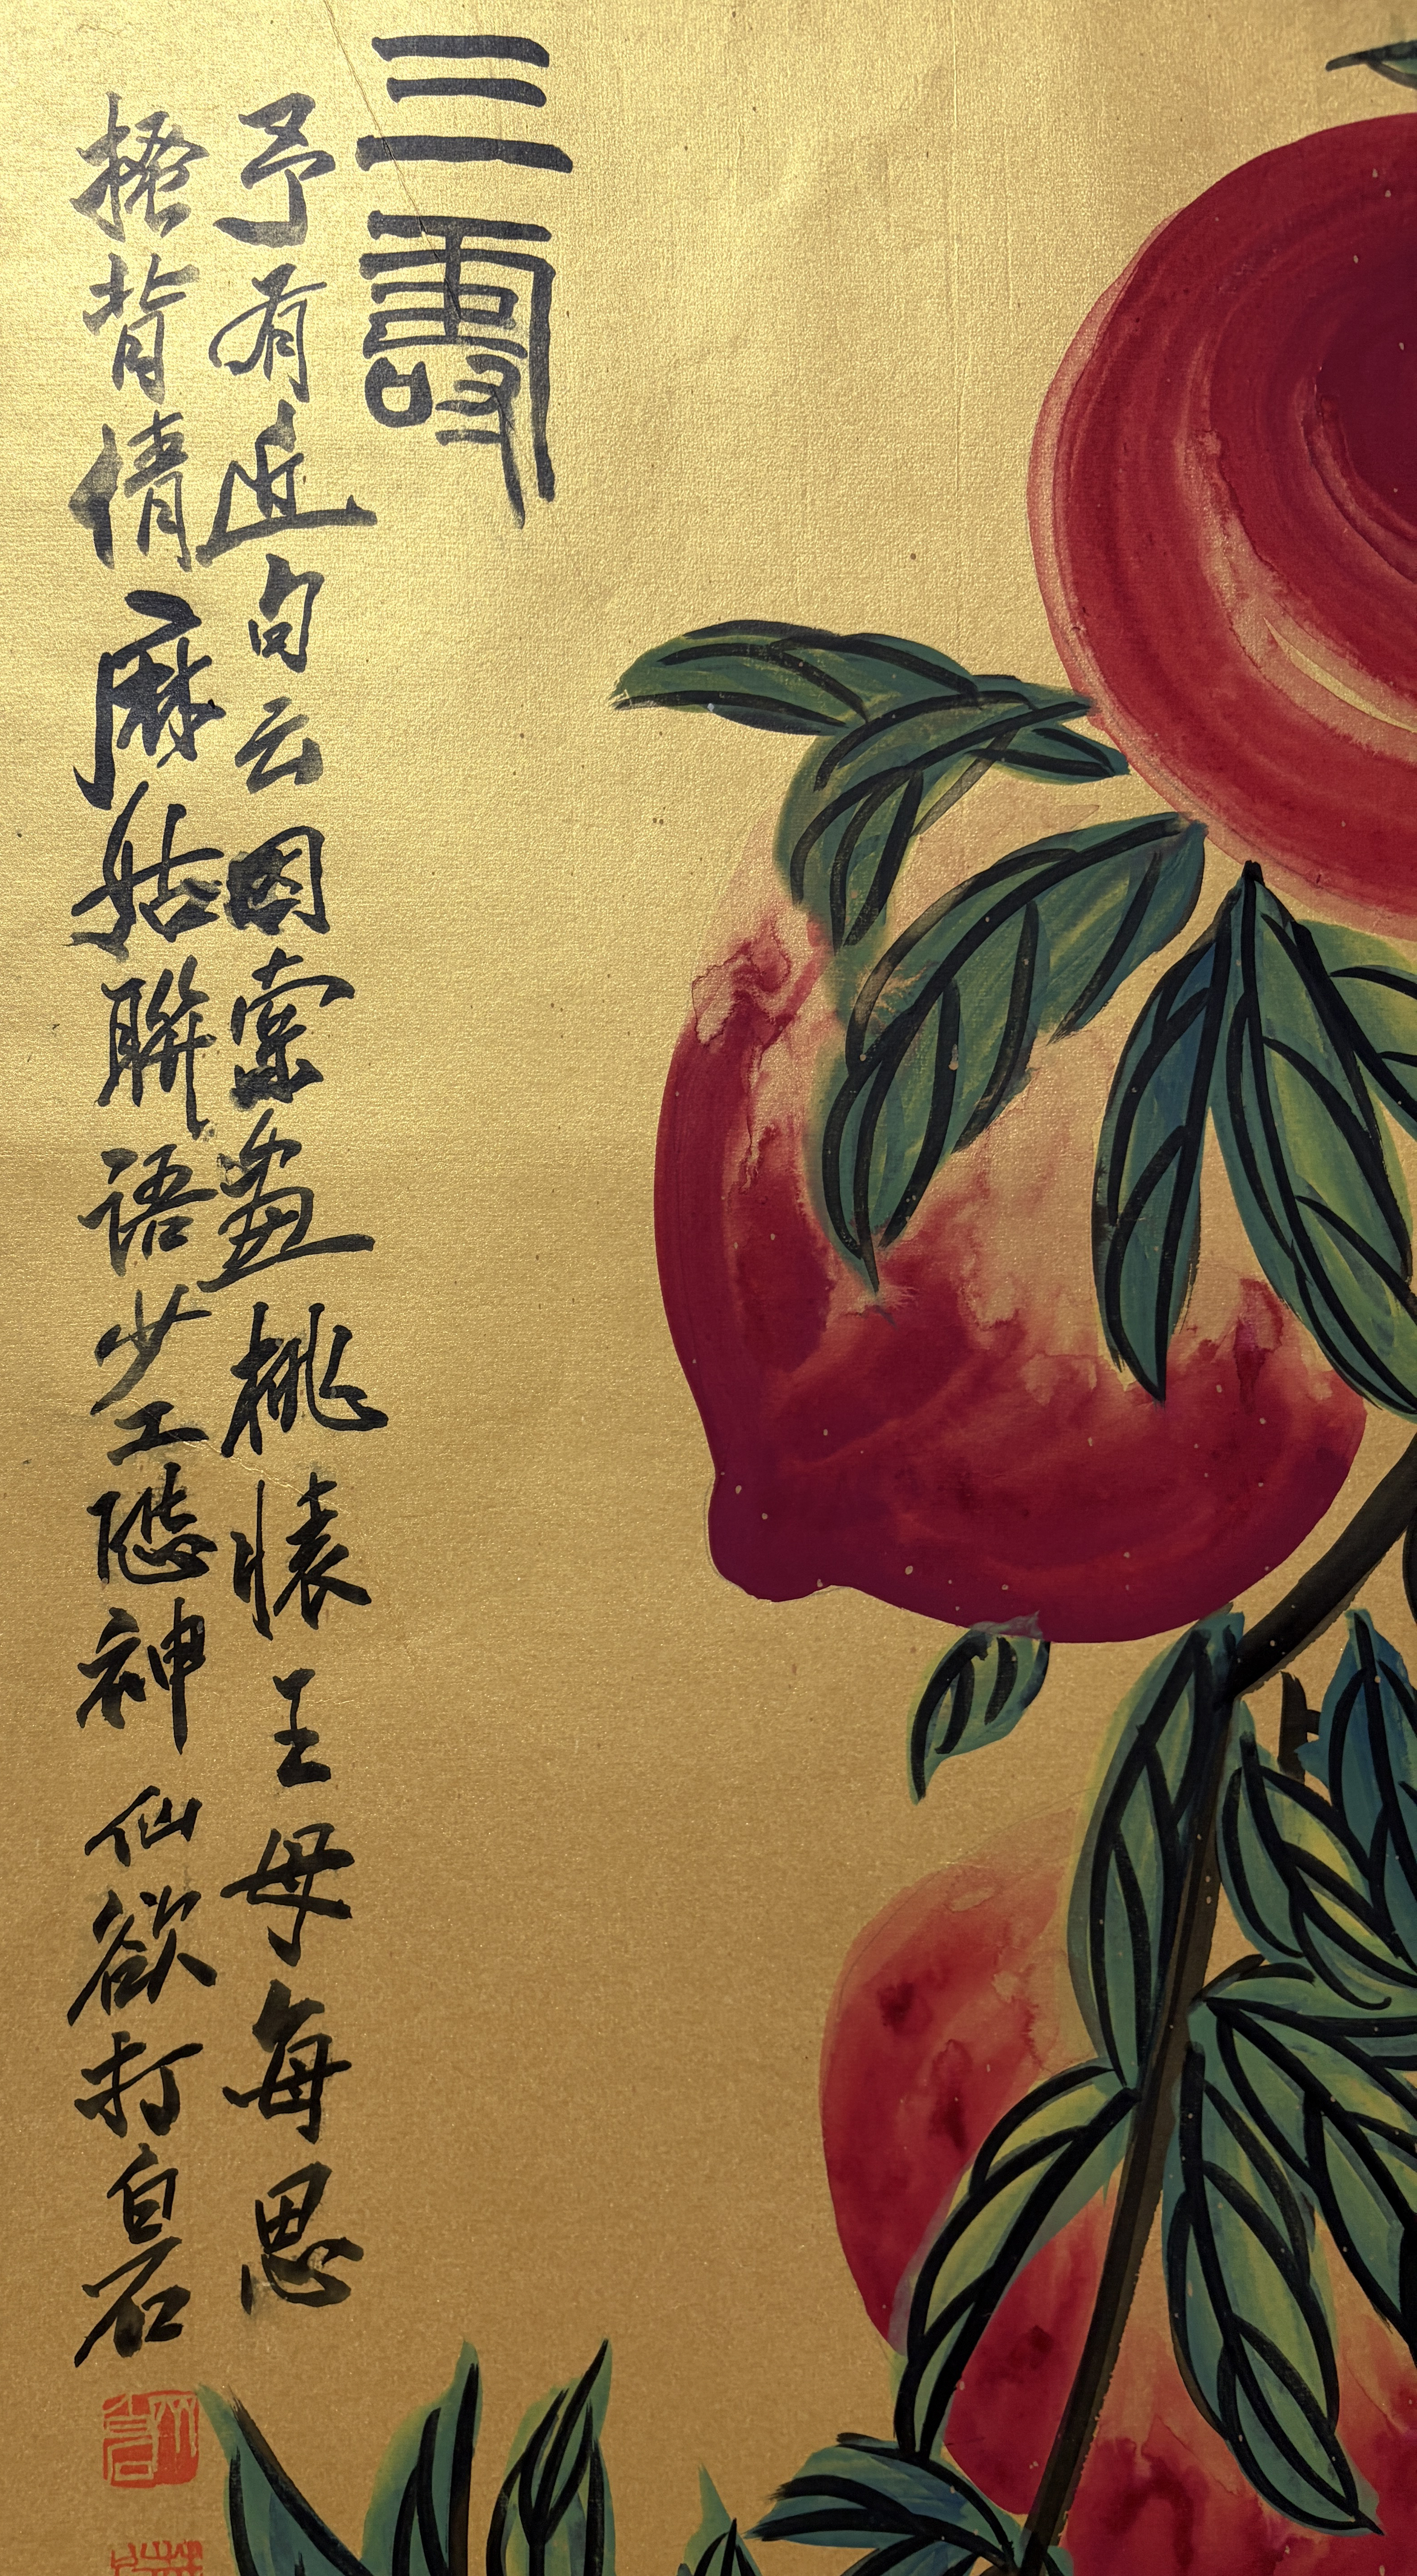 三壽
予有近句云因索畫桃懐王母每思
搔背倩麻姑聯語少工隱神仙欲打白石